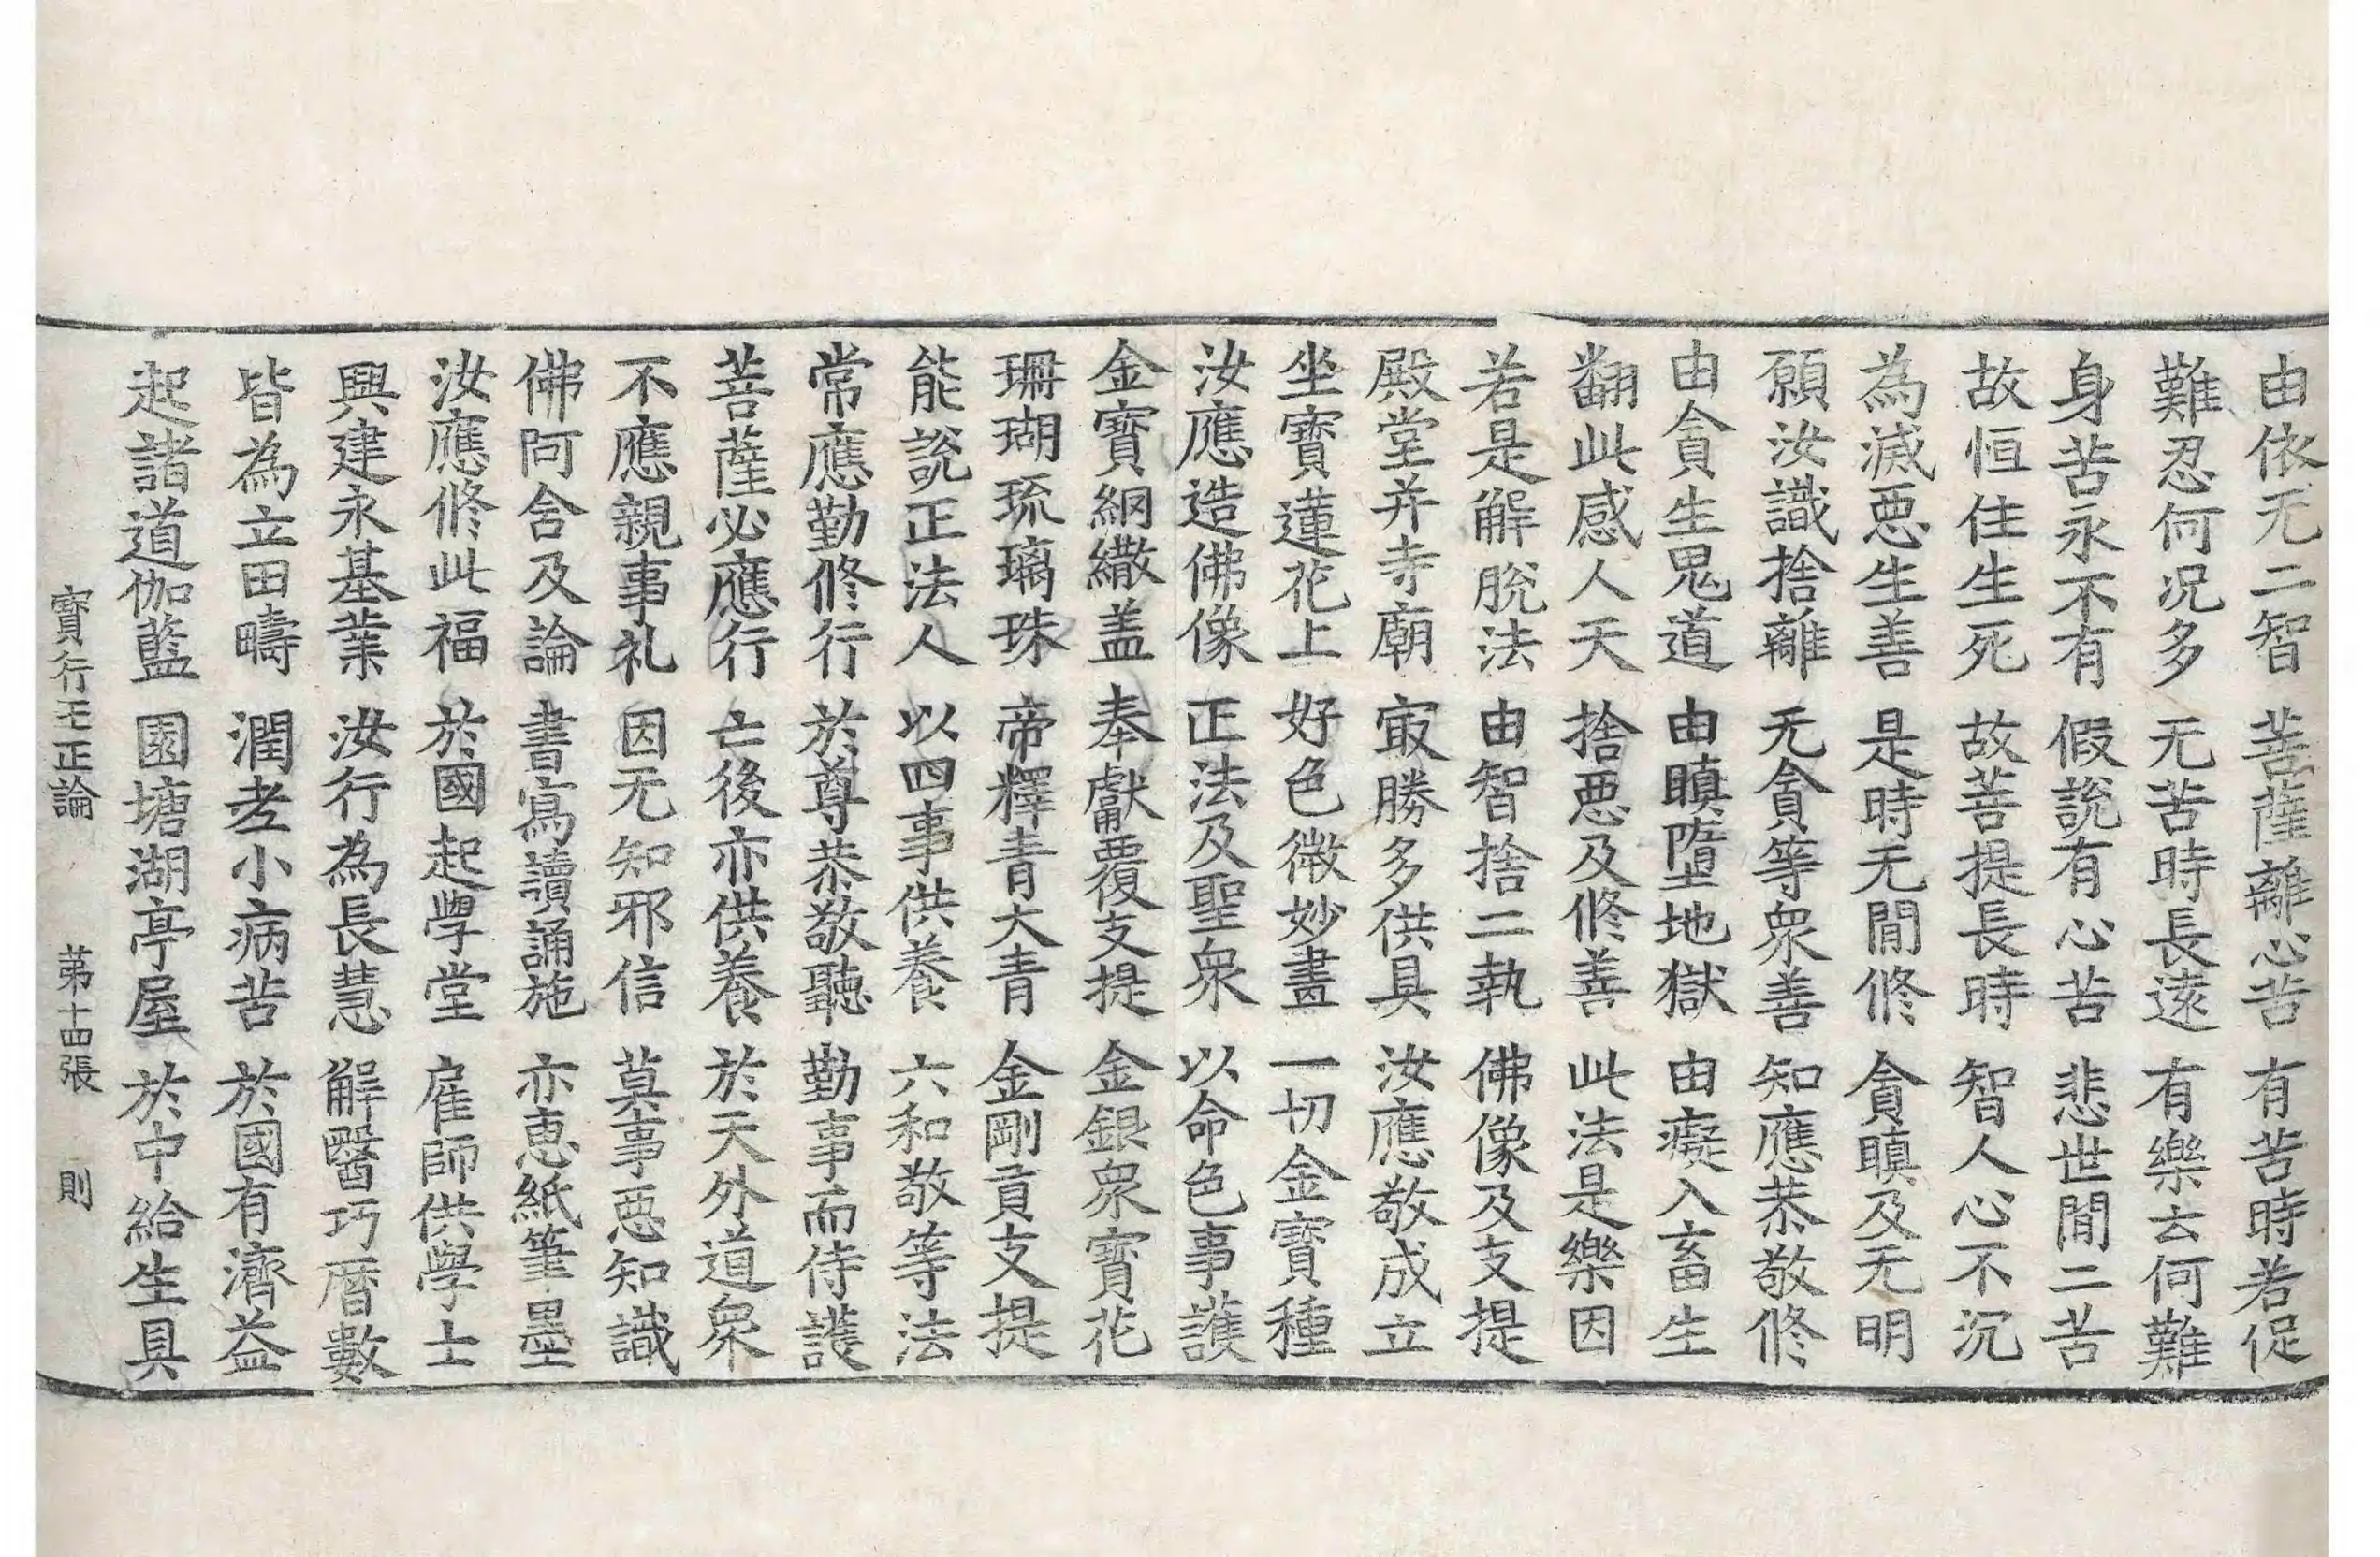 由依无二智 菩薩離心苦 有苦時若促
難忍何况多 无苦時長遠 有樂云何難
身苦永不有 假說有心苦 悲世間二苦
故恒住生死 故菩提長時 智人心不沉
為滅惡生善 是時无間修 貪瞋及无明
願汝識捨離 无貪等衆善 知應恭敬修
由貪生鬼道 由瞋墮地獄 由癡入畜生
翻此感人天 捨惡及修善 此法是樂因
若是解脫法 由智捨二執 佛像及支提
殿堂并寺廟 㝡勝多供具 汝應敬成立
坐寶蓮花上 好色微妙畫 一切金寶種
汝應造佛像 正法及聖衆 以命色事護
金寶網繖盖 奉獻覆支提 金銀衆寶花
珊瑚琉璃珠 帝釋青大青 金剛貢支提
能說正法人 以四事供養 六和敬等法
常應勤修行 於尊恭敬聽 勤事而侍護
菩薩必應行 亡後亦供養 於天外道衆
不應親事礼 因无知邪信 莫事惡知識
佛阿含及論 書寫讀誦施 亦惠紙筆墨
汝應修此福 於國起學堂 雇師供學士
興建永基業 汝行為長慧 解醫巧曆數
皆為立田疇 潤老小病苦 於國有濟益
起諸道伽藍 園塘湖亭屋 於中給生具
寶行王正論 苐十四張 則